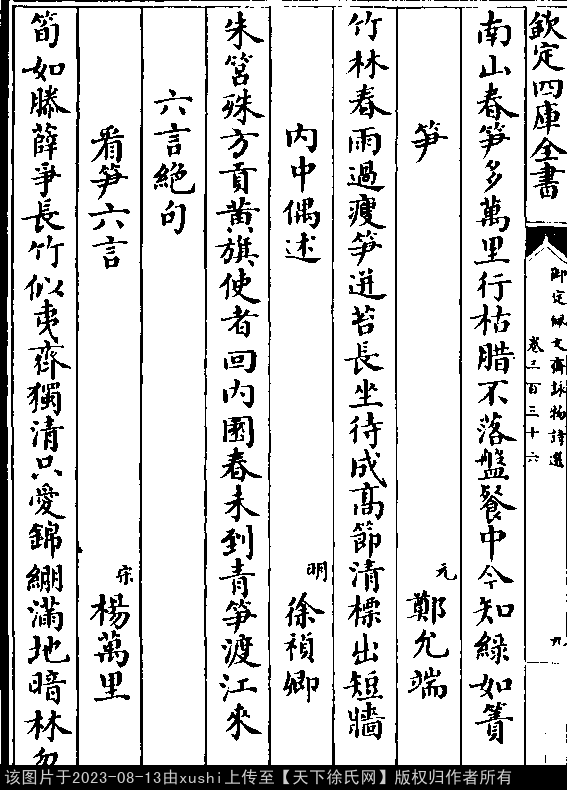 欽定四庫全書
御定佩文齋詠物詩選
卷三百三十六
九
南山春笋多萬里行枯腊不落盤餐中今知綠如簀
笋
元
鄭允端
竹林春雨過瘦笋迸苔長坐待成高節清標出短牆
內中偶述
明
徐禎卿
朱筥殊方貢黃旗使者回內園春未到青笋渡江來
六言絕句
看笋六言
宋
楊萬里
筍如滕薛爭長竹似夷齊獨清只愛錦繃滿地暗林
该图片于2023-08-13由xushi上传至【天下徐氏网】版权归作者所有